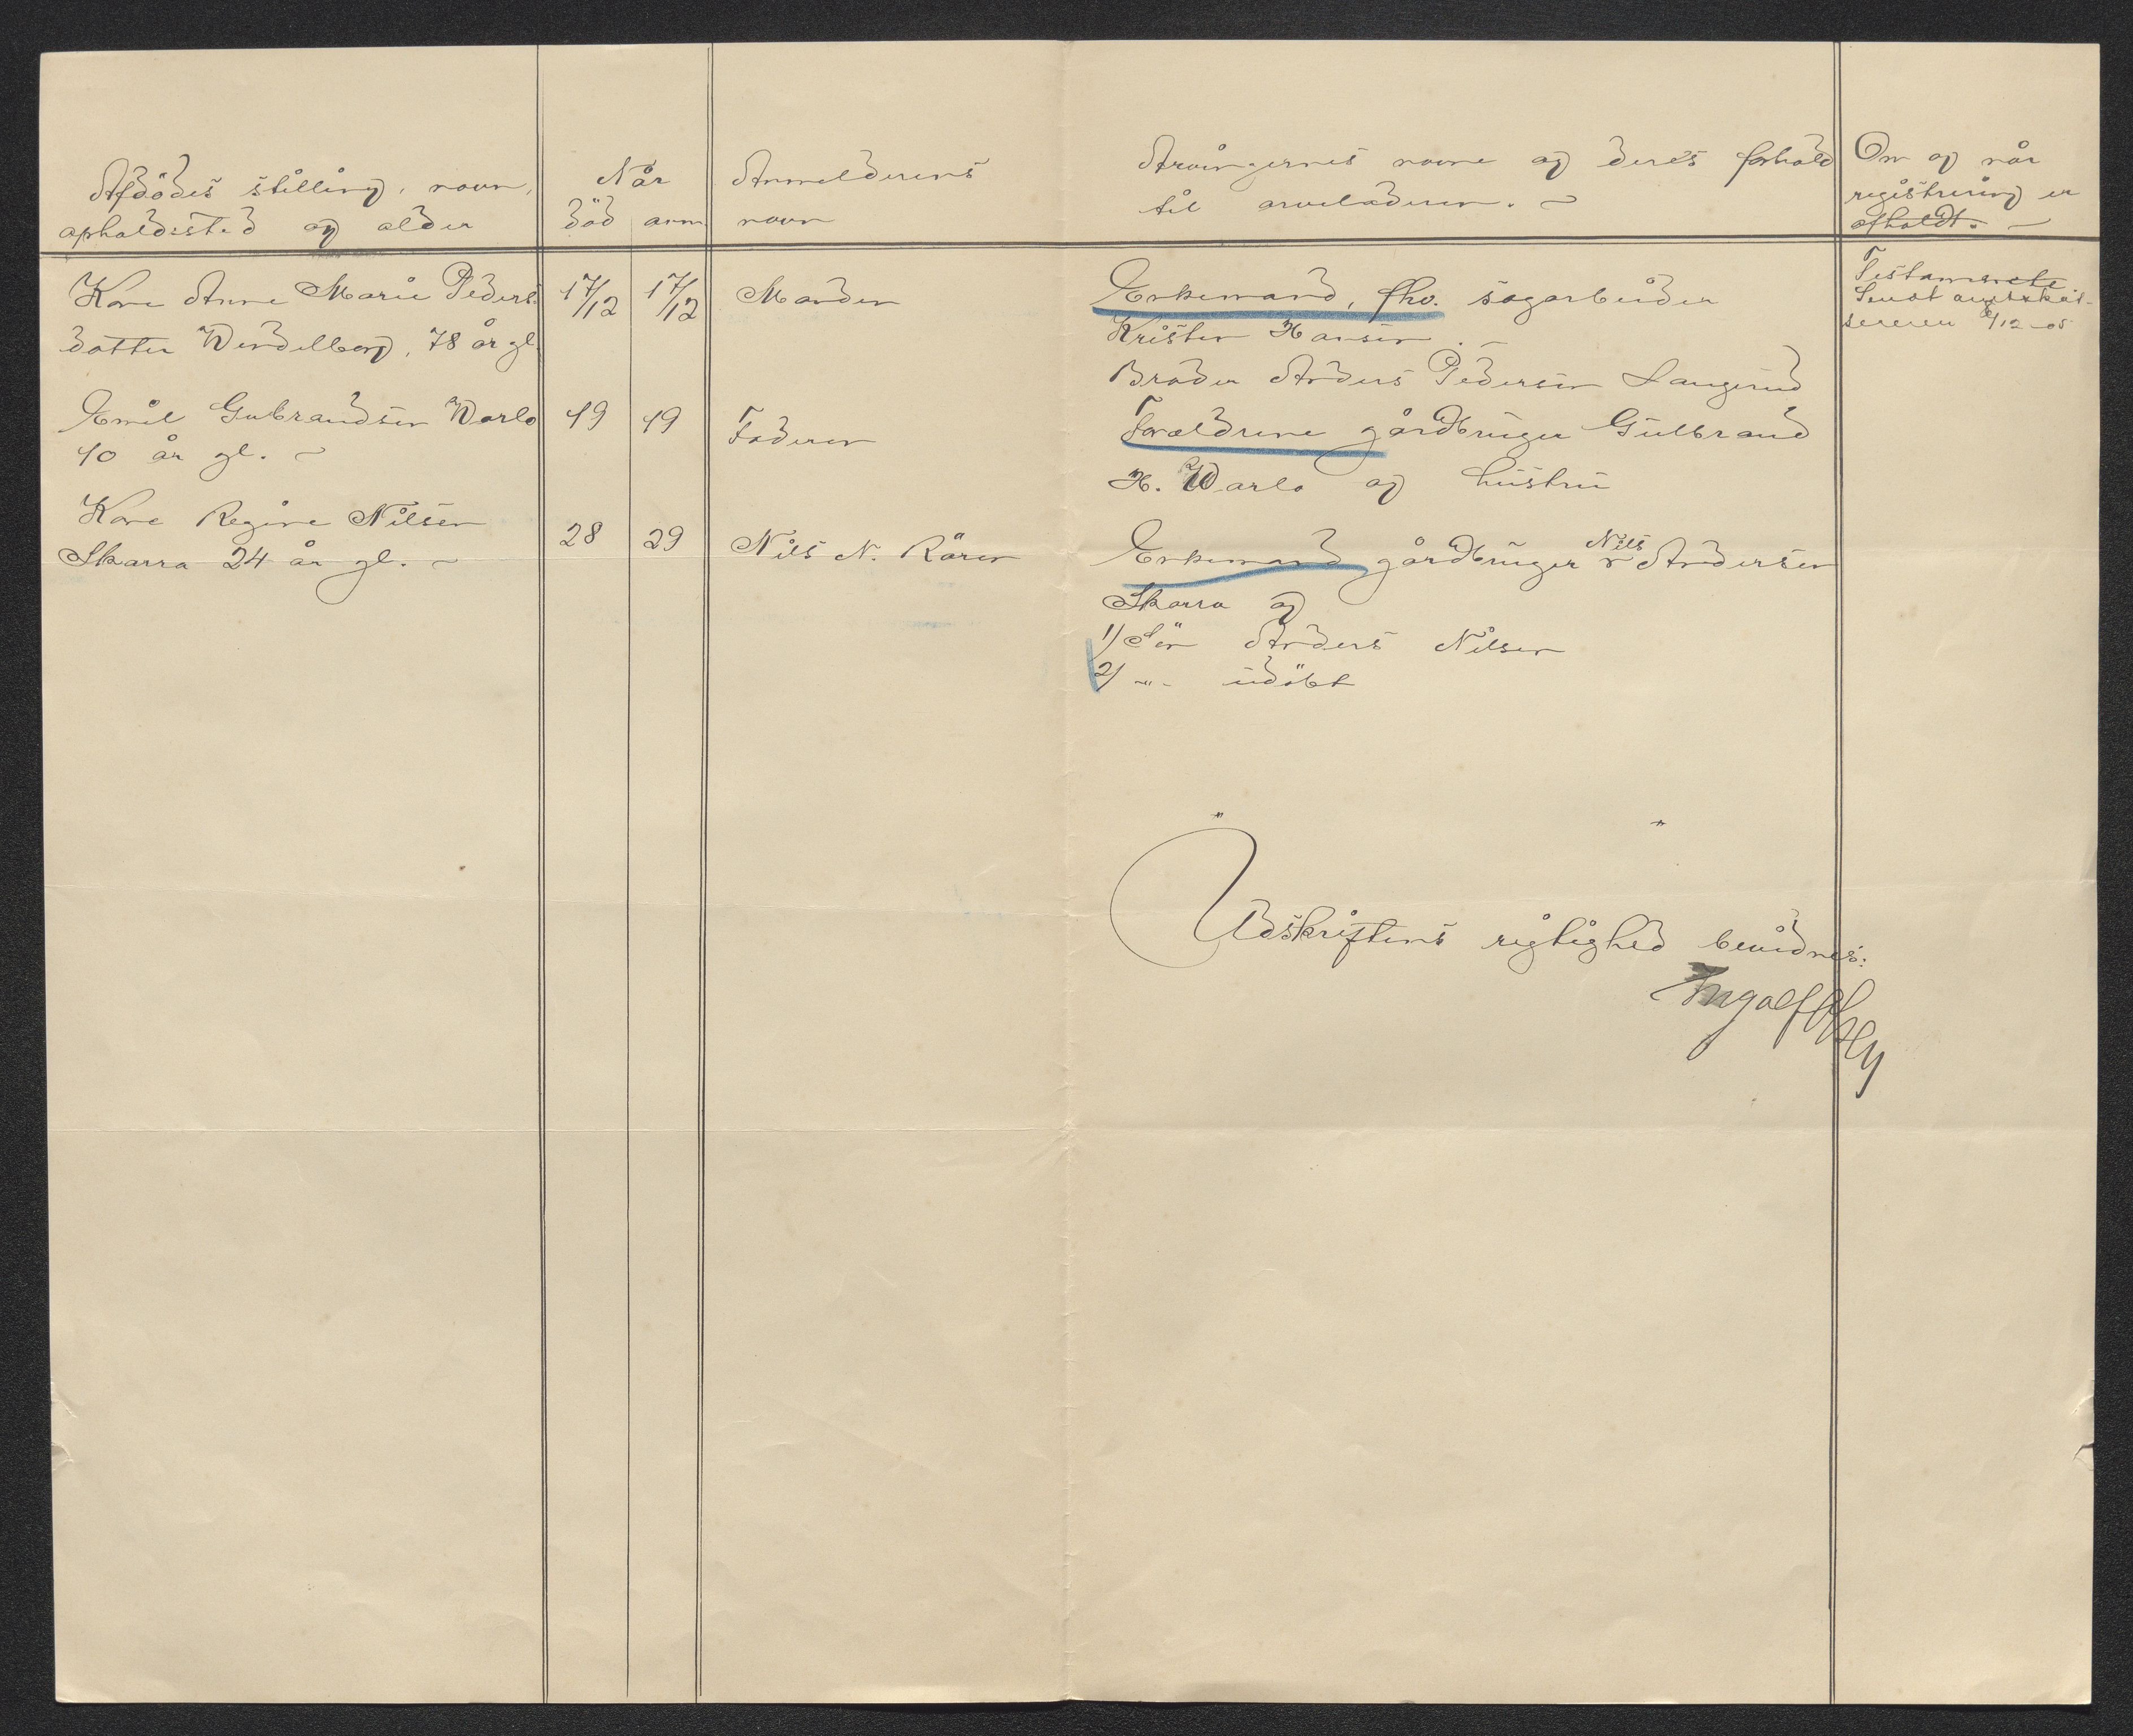 Afdödes stilling, navn,
opholdssted og alder
Når
död anm
Anmelderens
navn
Arvingernes navne og deres forhold
til arveladeren.
Om og når
registrering er
afholdt.
Kone Anne Marie Peders
datter Windelborg, 78 år gl.
17/12 17/12
Manden
Enkemand, fhv. sagarbeider
Kristen Hansen
Broder Anders Pedersen Haugerud
Testamente
Sendt
29/12-05
Emil Gubrandsen Warlo
10 år gl.
19 19
Faderen
Forældrene gårdbruger Gulbrand
H. Warlo og hustru
Kone Regine Nilsen
Skarra 24 år gl.
28 29
Nils N. Rören
Enkemand gårdbruger Nils Andersen
Skarra og
1) Sön Anders Nilsen
2) -"- udöbt
Udskriftens rigtighed bevidnes:
Ingolf Olsen